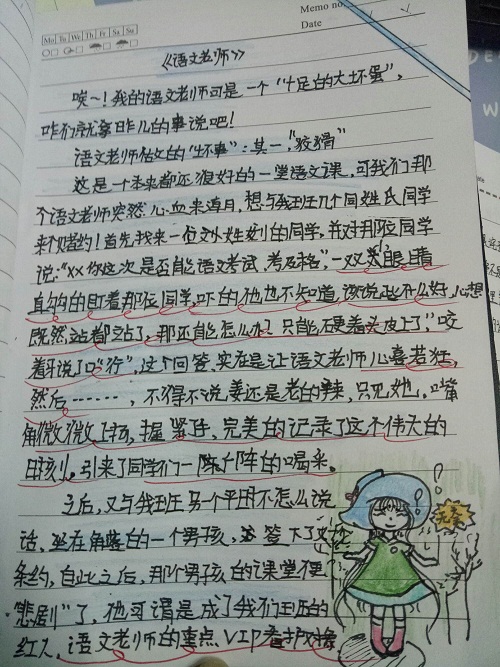 Memo no.
Mo Tu We Th Fr Sa Su
Date
《语文老师》
唉~!我的语文老师可是一个"十足的大坏蛋",
咱们就拿昨儿的事说吧!
语文老师做的"坏事":其一,"狡猾"
这是一个本来都还很好的一堂语文课,可我们那
个语文老师突然心血来潮,想与我班几个同姓氏同学
来个赌约!首先找来一位姓刘的同学,并对那位同学
说:"xx你这次是否能语文考试,考及格",一双大眼睛
直勾勾的盯着那位同学,吓的他也不知道,该说些什么好,心想
既然,站都站了,那还能怎么办?只能硬着头皮上了,"咬
着牙说了口"行",这个回答,实在是让语文老师心喜若狂,
然后……,不得不说,姜还是老的辣,只见她,嘴
角微微上扬,握笔手,完美的记录了这个伟大的
时刻,引来了同学们一阵阵的喝采。
之后,又与我班另一个平时不怎么说
话,坐在角落的一个男孩,签下了
条约,自此之后,那个男孩的课堂便
"悲剧"了,他可谓是成了我们班的
红人,语文老师的重点VIP看护对象